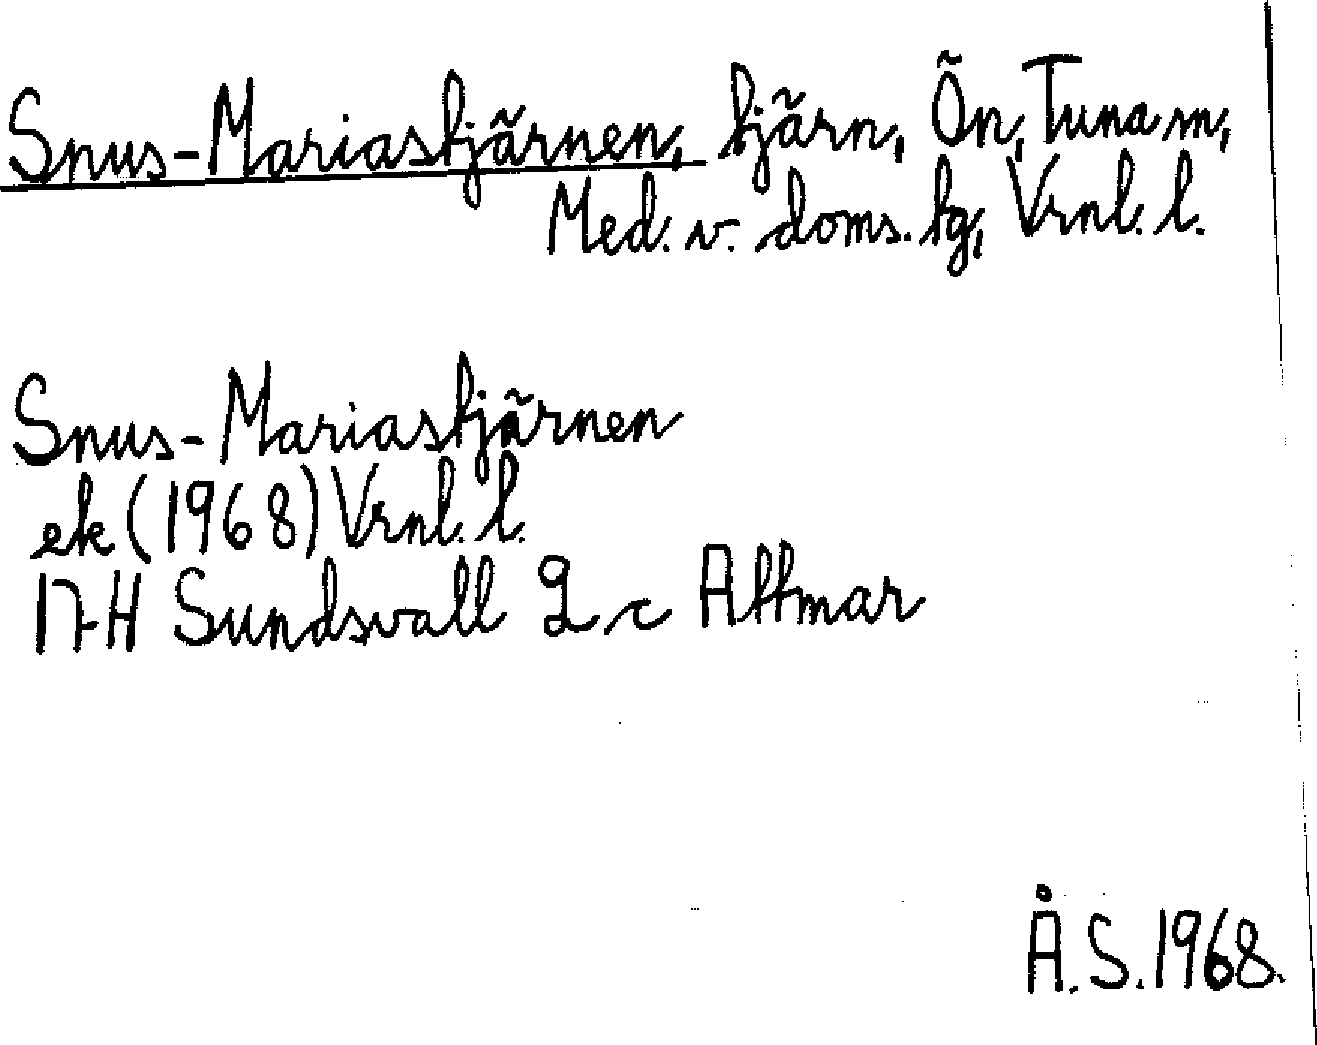 Snus-Mariastjärnen, tjärn, Ön, Tuna sn,
Med. v. doms. tg, Vrnl. l.
Snus-Mariastjärnen
ek (1968) Vrnl. l.
17H Sundsvall 2 c Attmar
Å.S. 1968.